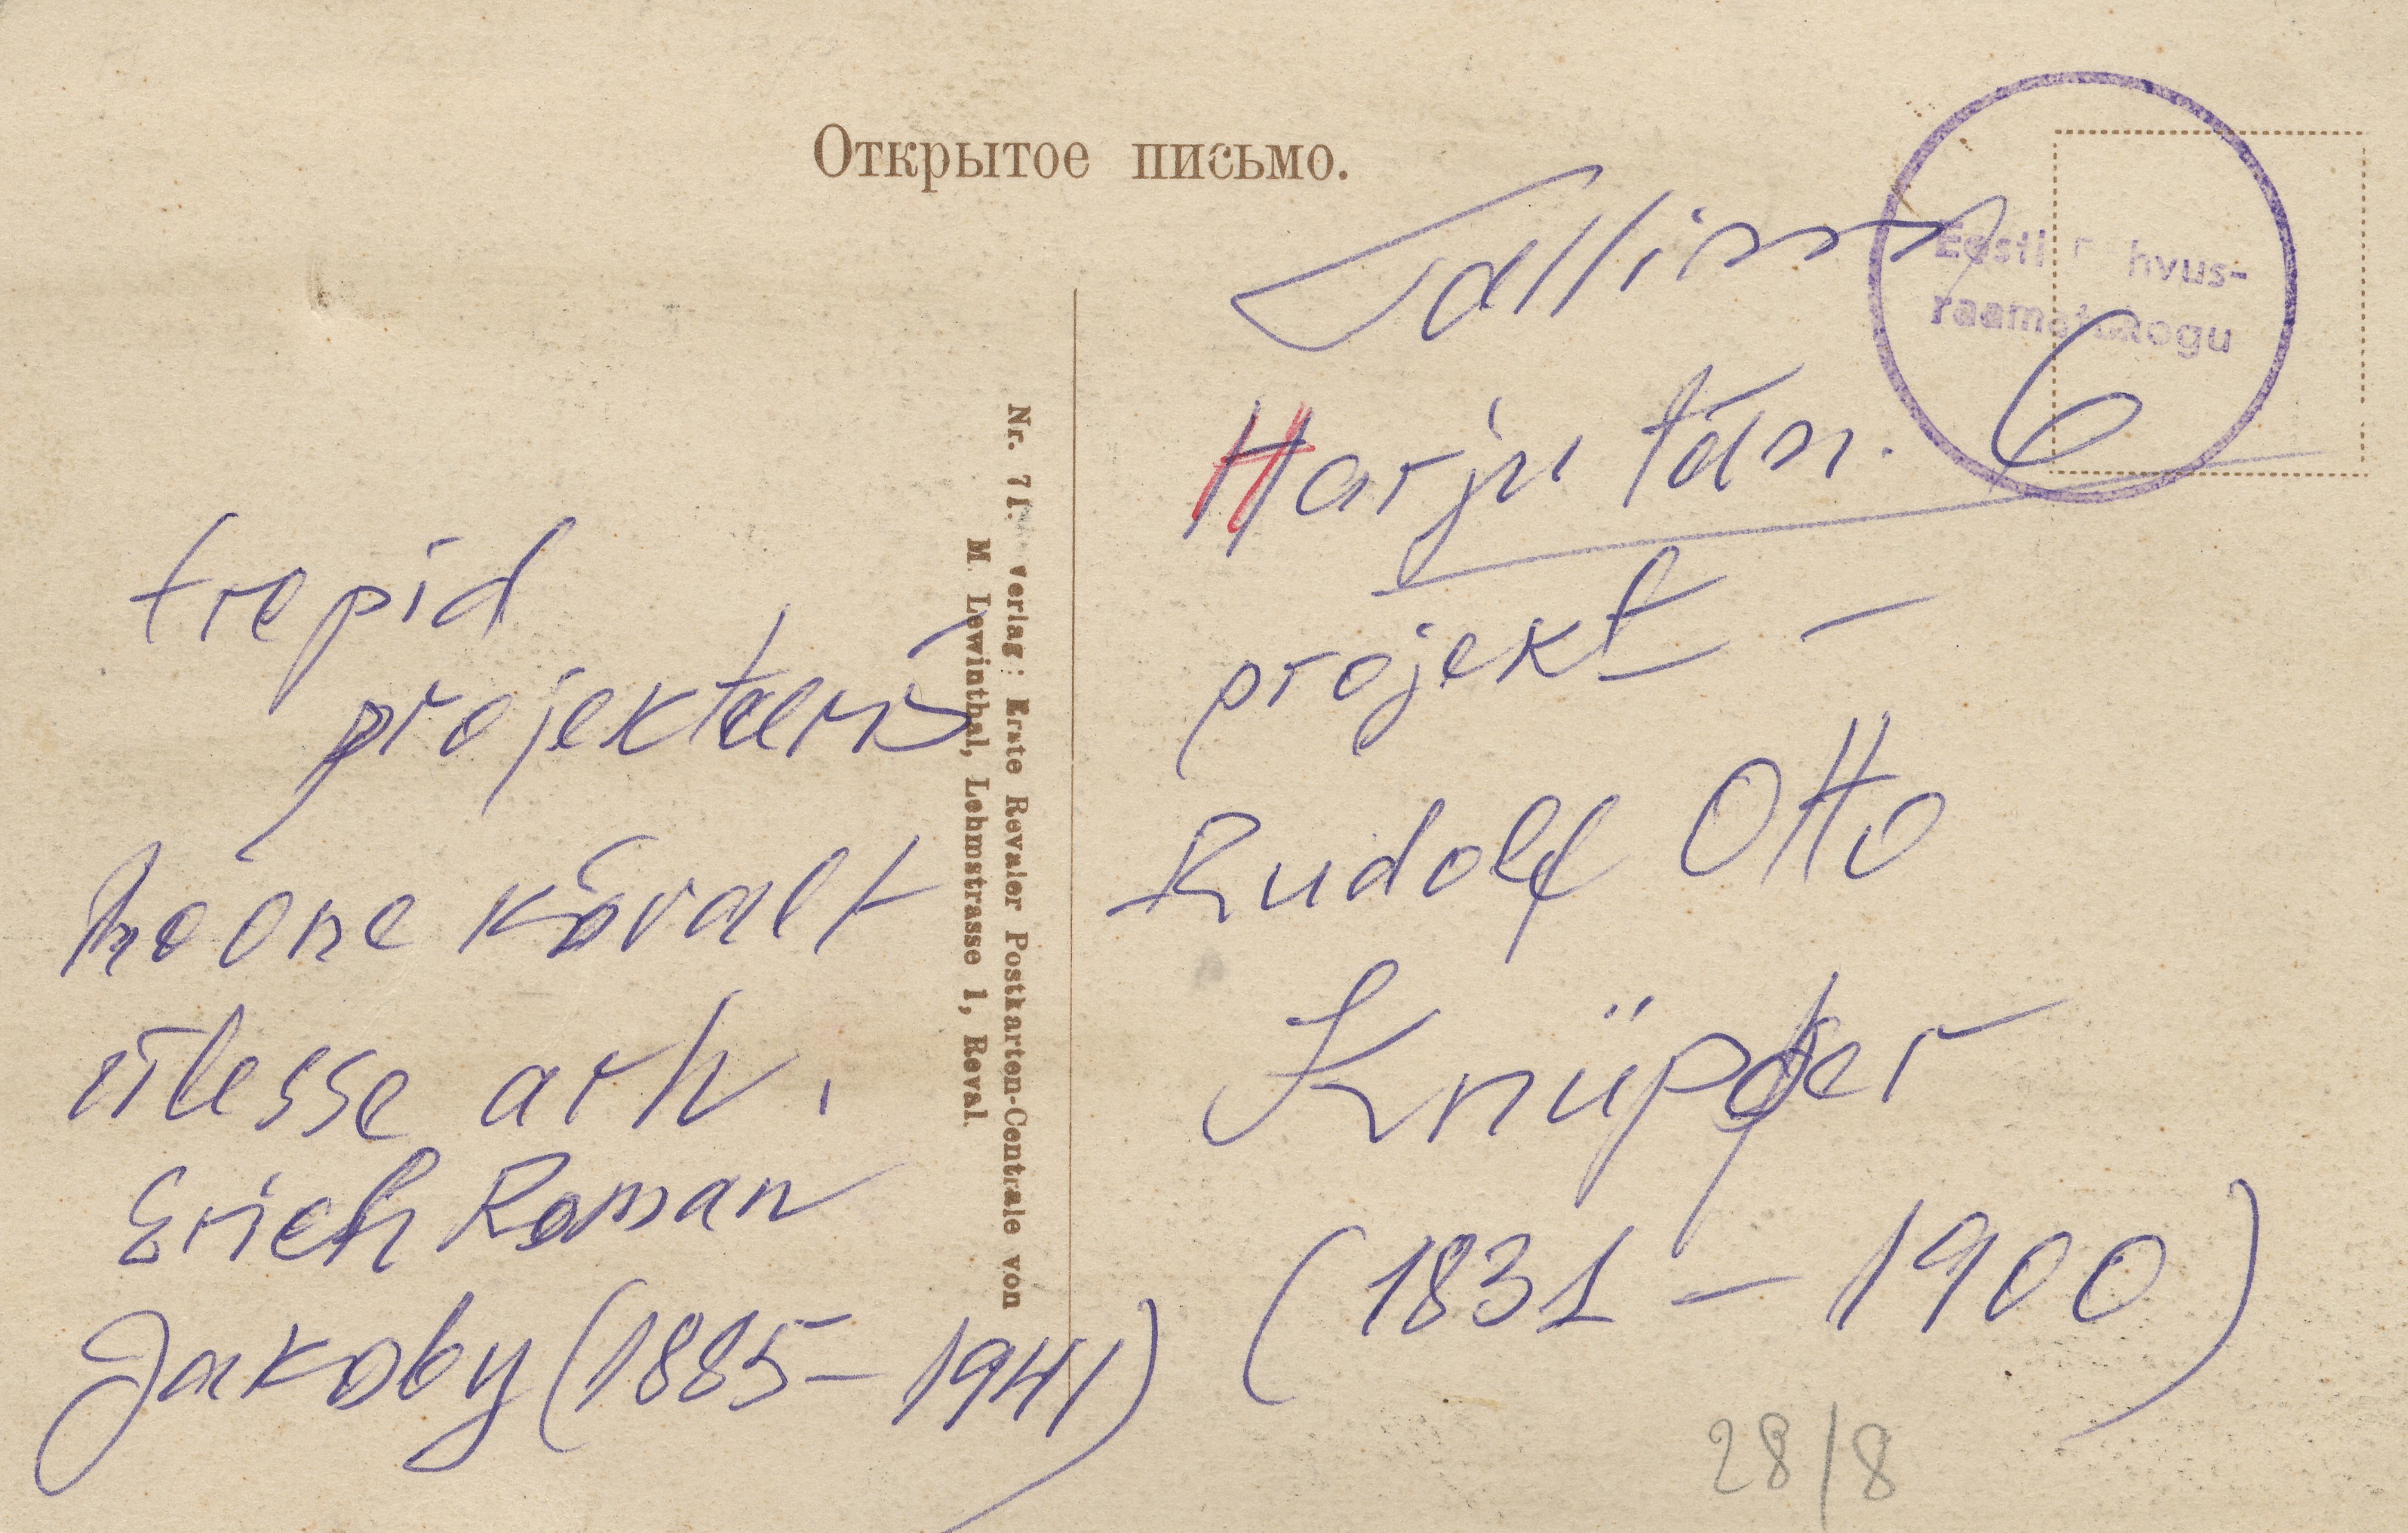 Открытое письмо.
Eesti rahvus-
raamatukogu
Tallinn
Harju tän. 6
projekt –
Rudolf Otto
Knüpfer
(1831 – 1900)
28/8
Nr. 71. Verlag: Erste Revaler Postkarten-Centrale von
M. Lewinthal, Lehmstrasse 1, Reval.
trepid
projekteeris
hoone kõrvalt
ülesse arh.
Erich Roman
Jakoby (1885 – 1941)